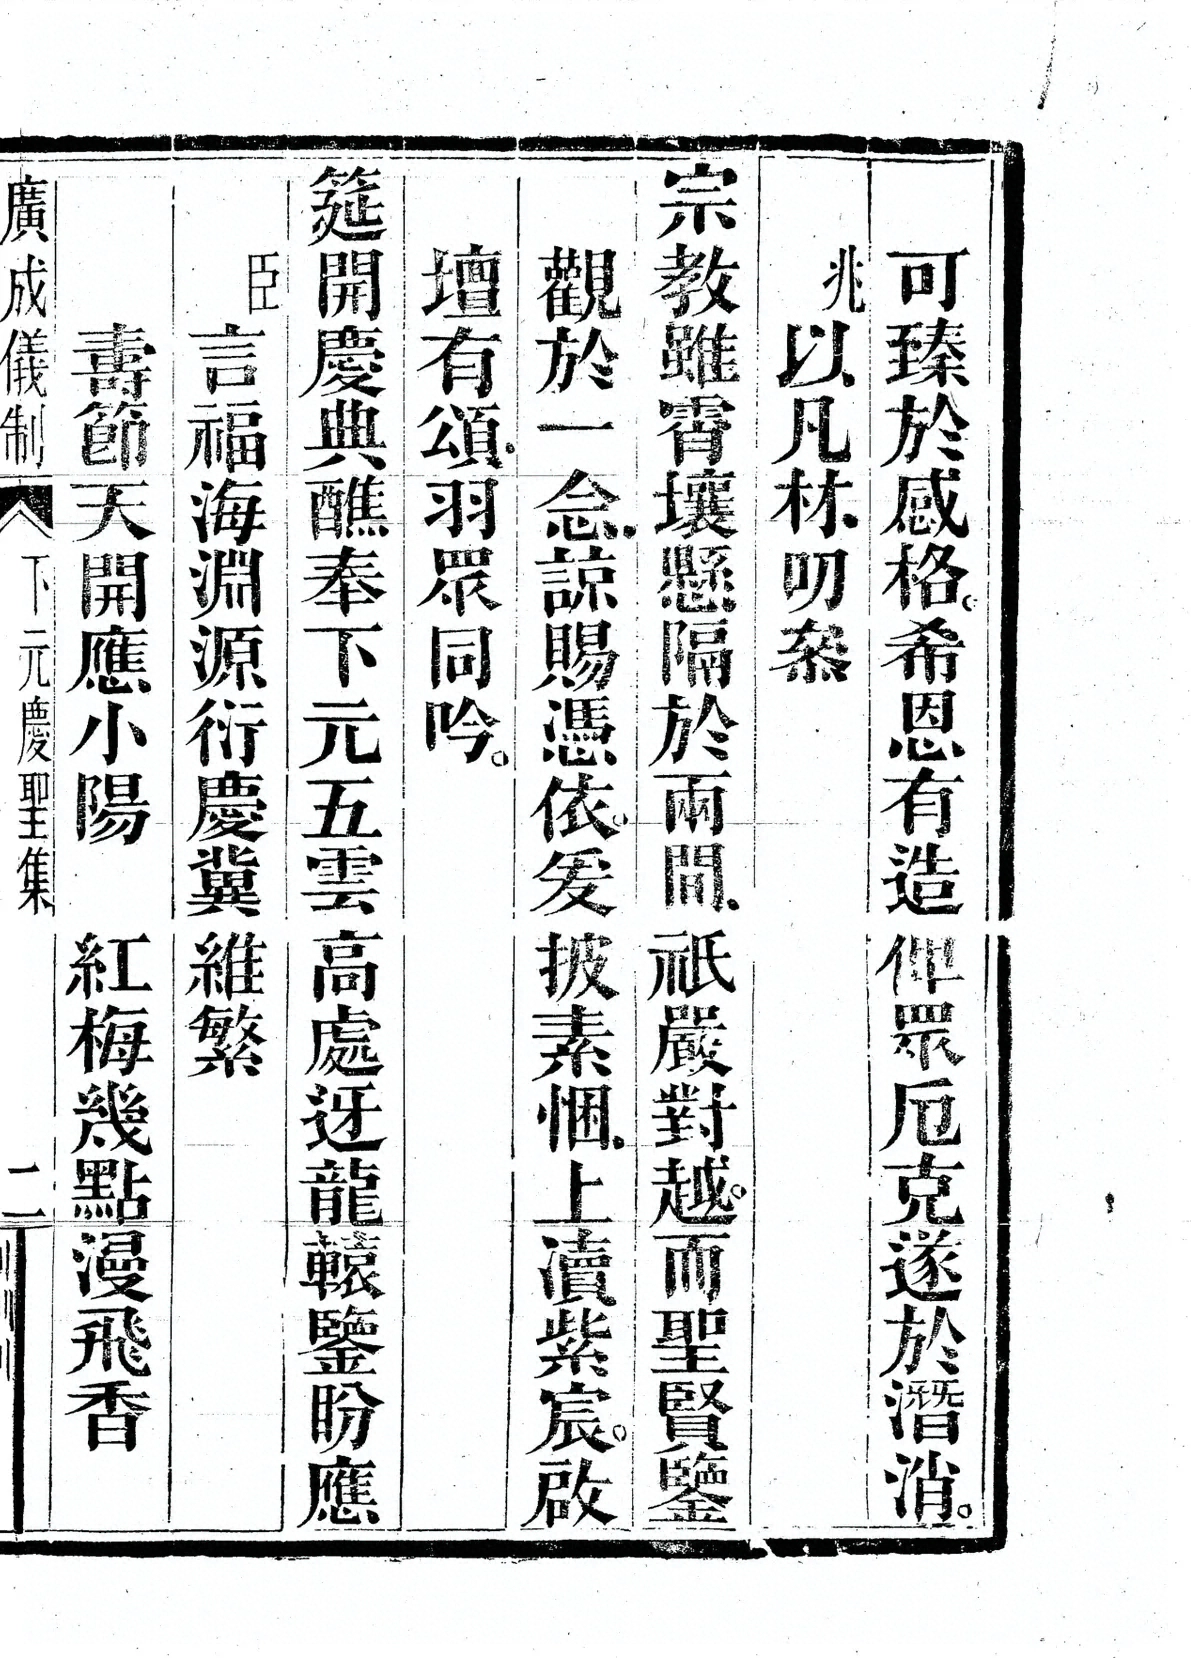 可臻於感格。希恩有造俾眾厄克遂於潛消。
兆以凡材叨忝
宗教雖霄壤懸隔於兩間祇嚴對越。而聖賢鑒
觀於一念諒賜憑依。爰披素悃上瀆紫宸。啟
壇有頌羽眾同吟。
筵開慶典醮奉下元五雲高處迓龍轅鑒盼應
臣言福海淵源衍慶冀維繁
壽節天開應小陽紅梅幾點漫飛香
廣成儀制 下元慶聖集 二